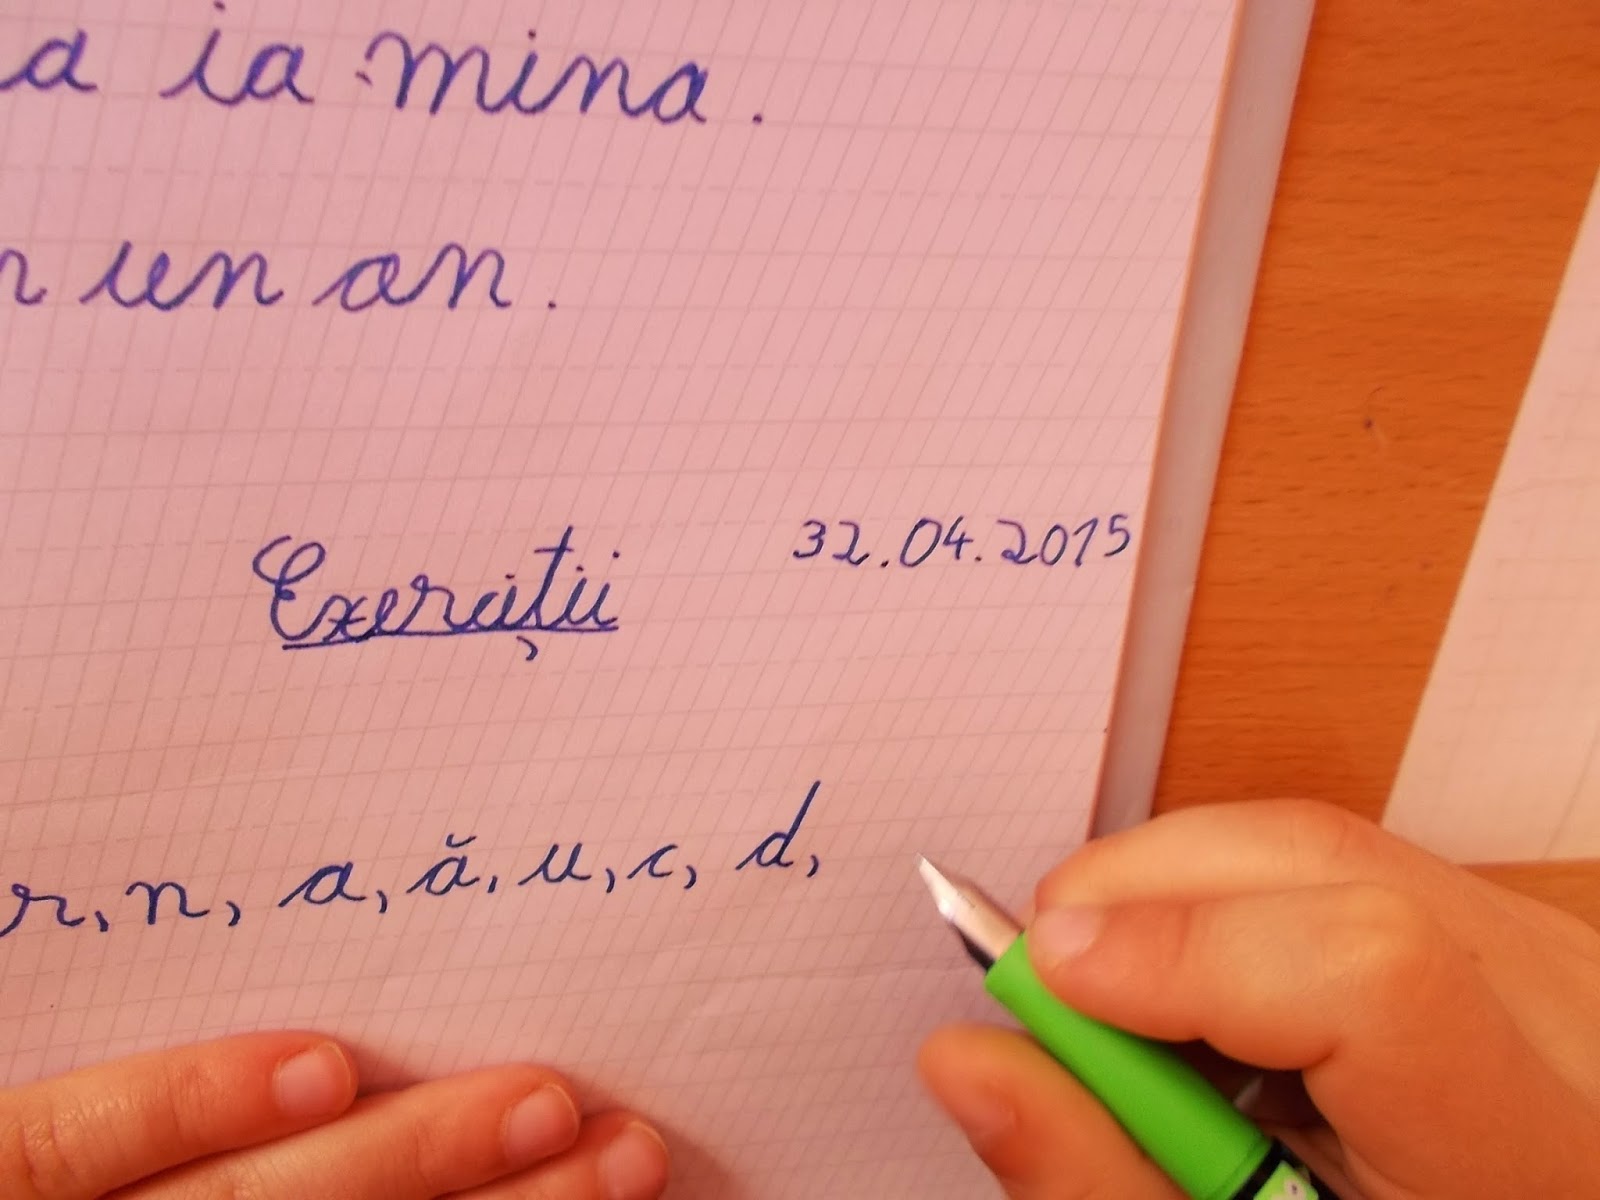 a ia mina.
n un an.
Exerciții 32.04.2015
r, n, a, ă, u, c, d,